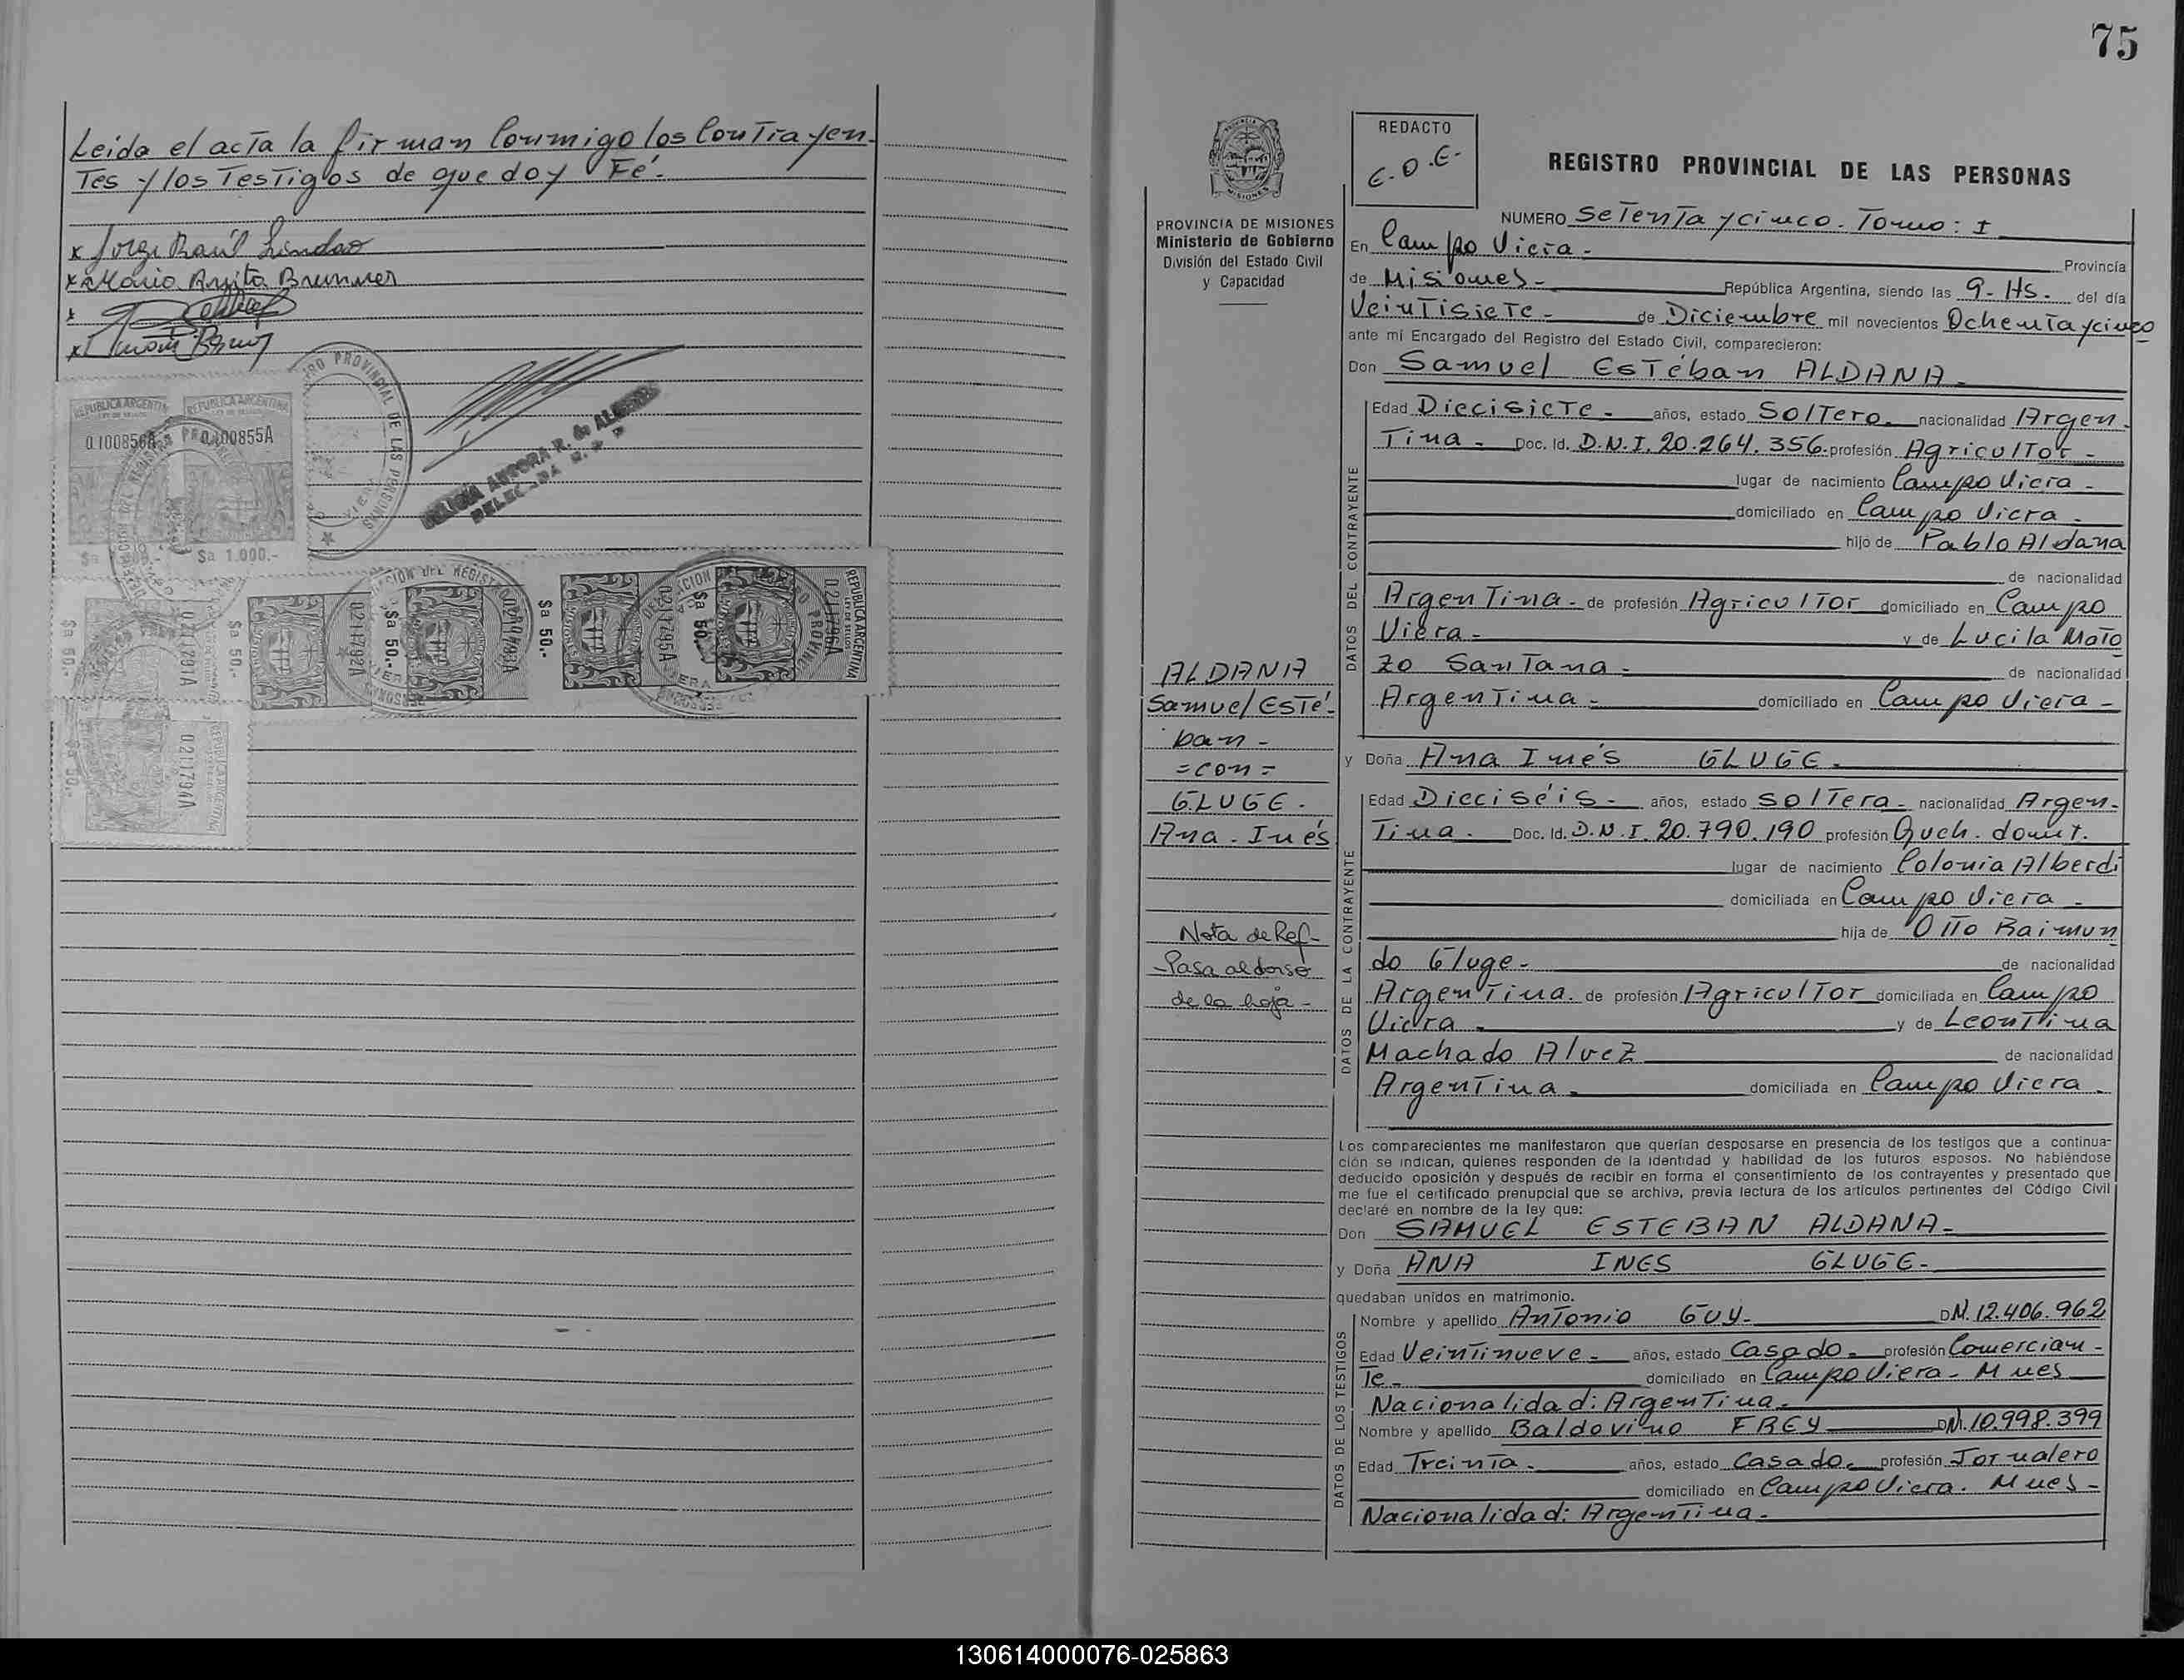 Leida el acta la firman Conmigo los Contrayen-
Tes y los Testigos de que doy Fé.-
x Jorge Raúl Lindao
x Maria Anita Brunner
x
x
REPUBLICA ARGENTINA
REPUBLICA ARGENTINA
0.100855A
$a 1.000.-
$a 50.-
$a 50.-
$a 50.-
$a 50.-
0211791A
0211792A
0211795A
0211796A
REPUBLICA ARGENTINA
0211794A
75
REDACTO
E.D.E.-
REGISTRO PROVINCIAL DE LAS PERSONAS
PROVINCIA DE MISIONES
Ministerio de Gobierno
División del Estado Civil
y Capacidad
NUMERO SeTenTa y cinco. Tomo: I
En Campo Viera.- Provincia
de Misiones.- República Argentina, siendo las 9-Hs. del día
VeinTisieTe.- de Diciembre mil novecientos OchenTa y cinco
ante mí Encargado del Registro del Estado Civil, comparecieron:
Don Samuel EsTéban ALDANA.-
DATOS DEL CONTRAYENTE
Edad DiecisieTe.- años, estado SolTero. nacionalidad Argen-
Tina.- Doc. Id. D.N.I. 20.264.356. profesión AgriculTor.-
lugar de nacimiento Campo Viera.-
domiciliado en Campo Viera.-
hijo de Pablo Aldana
de nacionalidad
ArgenTina.- de profesión AgriculTor domiciliado en Campo
Viera.- y de Lucila Moto
zo SanTana.- de nacionalidad
ArgenTina.- domiciliado en Campo Viera.-
ALDANA
Samuel EsTé-
ban-
=con=
GLUGE.
Ana-Inés
Nota de Ref-
Pasa al dorso
de la hoja-
y Doña Ana Inés GLUGE.-
DATOS DE LA CONTRAYENTE
Edad Dieciséis.- años, estado SolTera.- nacionalidad Argen-
Tina.- Doc. Id. D.N.I. 20.790.190 profesión Queh. domt.
lugar de nacimiento Colonia Alberdi
domiciliada en Campo Viera.-
hija de OTTo Raimun
do Gluge.- de nacionalidad
ArgenTina. de profesión AgriculTor domiciliada en Campo
Viera.- y de LeonTina
Machado Alvez de nacionalidad
ArgenTina.- domiciliada en Campo Viera.-
Los comparecientes me manifestaron que querían desposarse en presencia de los testigos que a continua-
ción se indican, quienes responden de la identidad y habilidad de los futuros esposos. No habiéndose
deducido oposición y después de recibir en forma el consentimiento de los contrayentes y presentado que
me fue el certificado prenupcial que se archiva, previa lectura de los artículos pertinentes del Código Civil
declaré en nombre de la ley que:
Don SAMUEL ESTEBAN ALDANA-
y Doña ANA INES GLUGE-
quedaban unidos en matrimonio.
DATOS DE LOS TESTIGOS
Nombre y apellido AnTonio GUY- DNI. 12.406.962
Edad VeinTinueve.- años, estado Casado.- profesión Comercian-
Te- domiciliado en Campo Viera- Mnes
Nacionalidad: ArgenTina.-
Nombre y apellido Baldovino FREY DNI. 10.998.399
Edad TreinTa.- años, estado Casado. profesión Jornalero
domiciliado en Campo Viera. Mnes-
Nacionalidad: ArgenTina.-
130614000076-025863